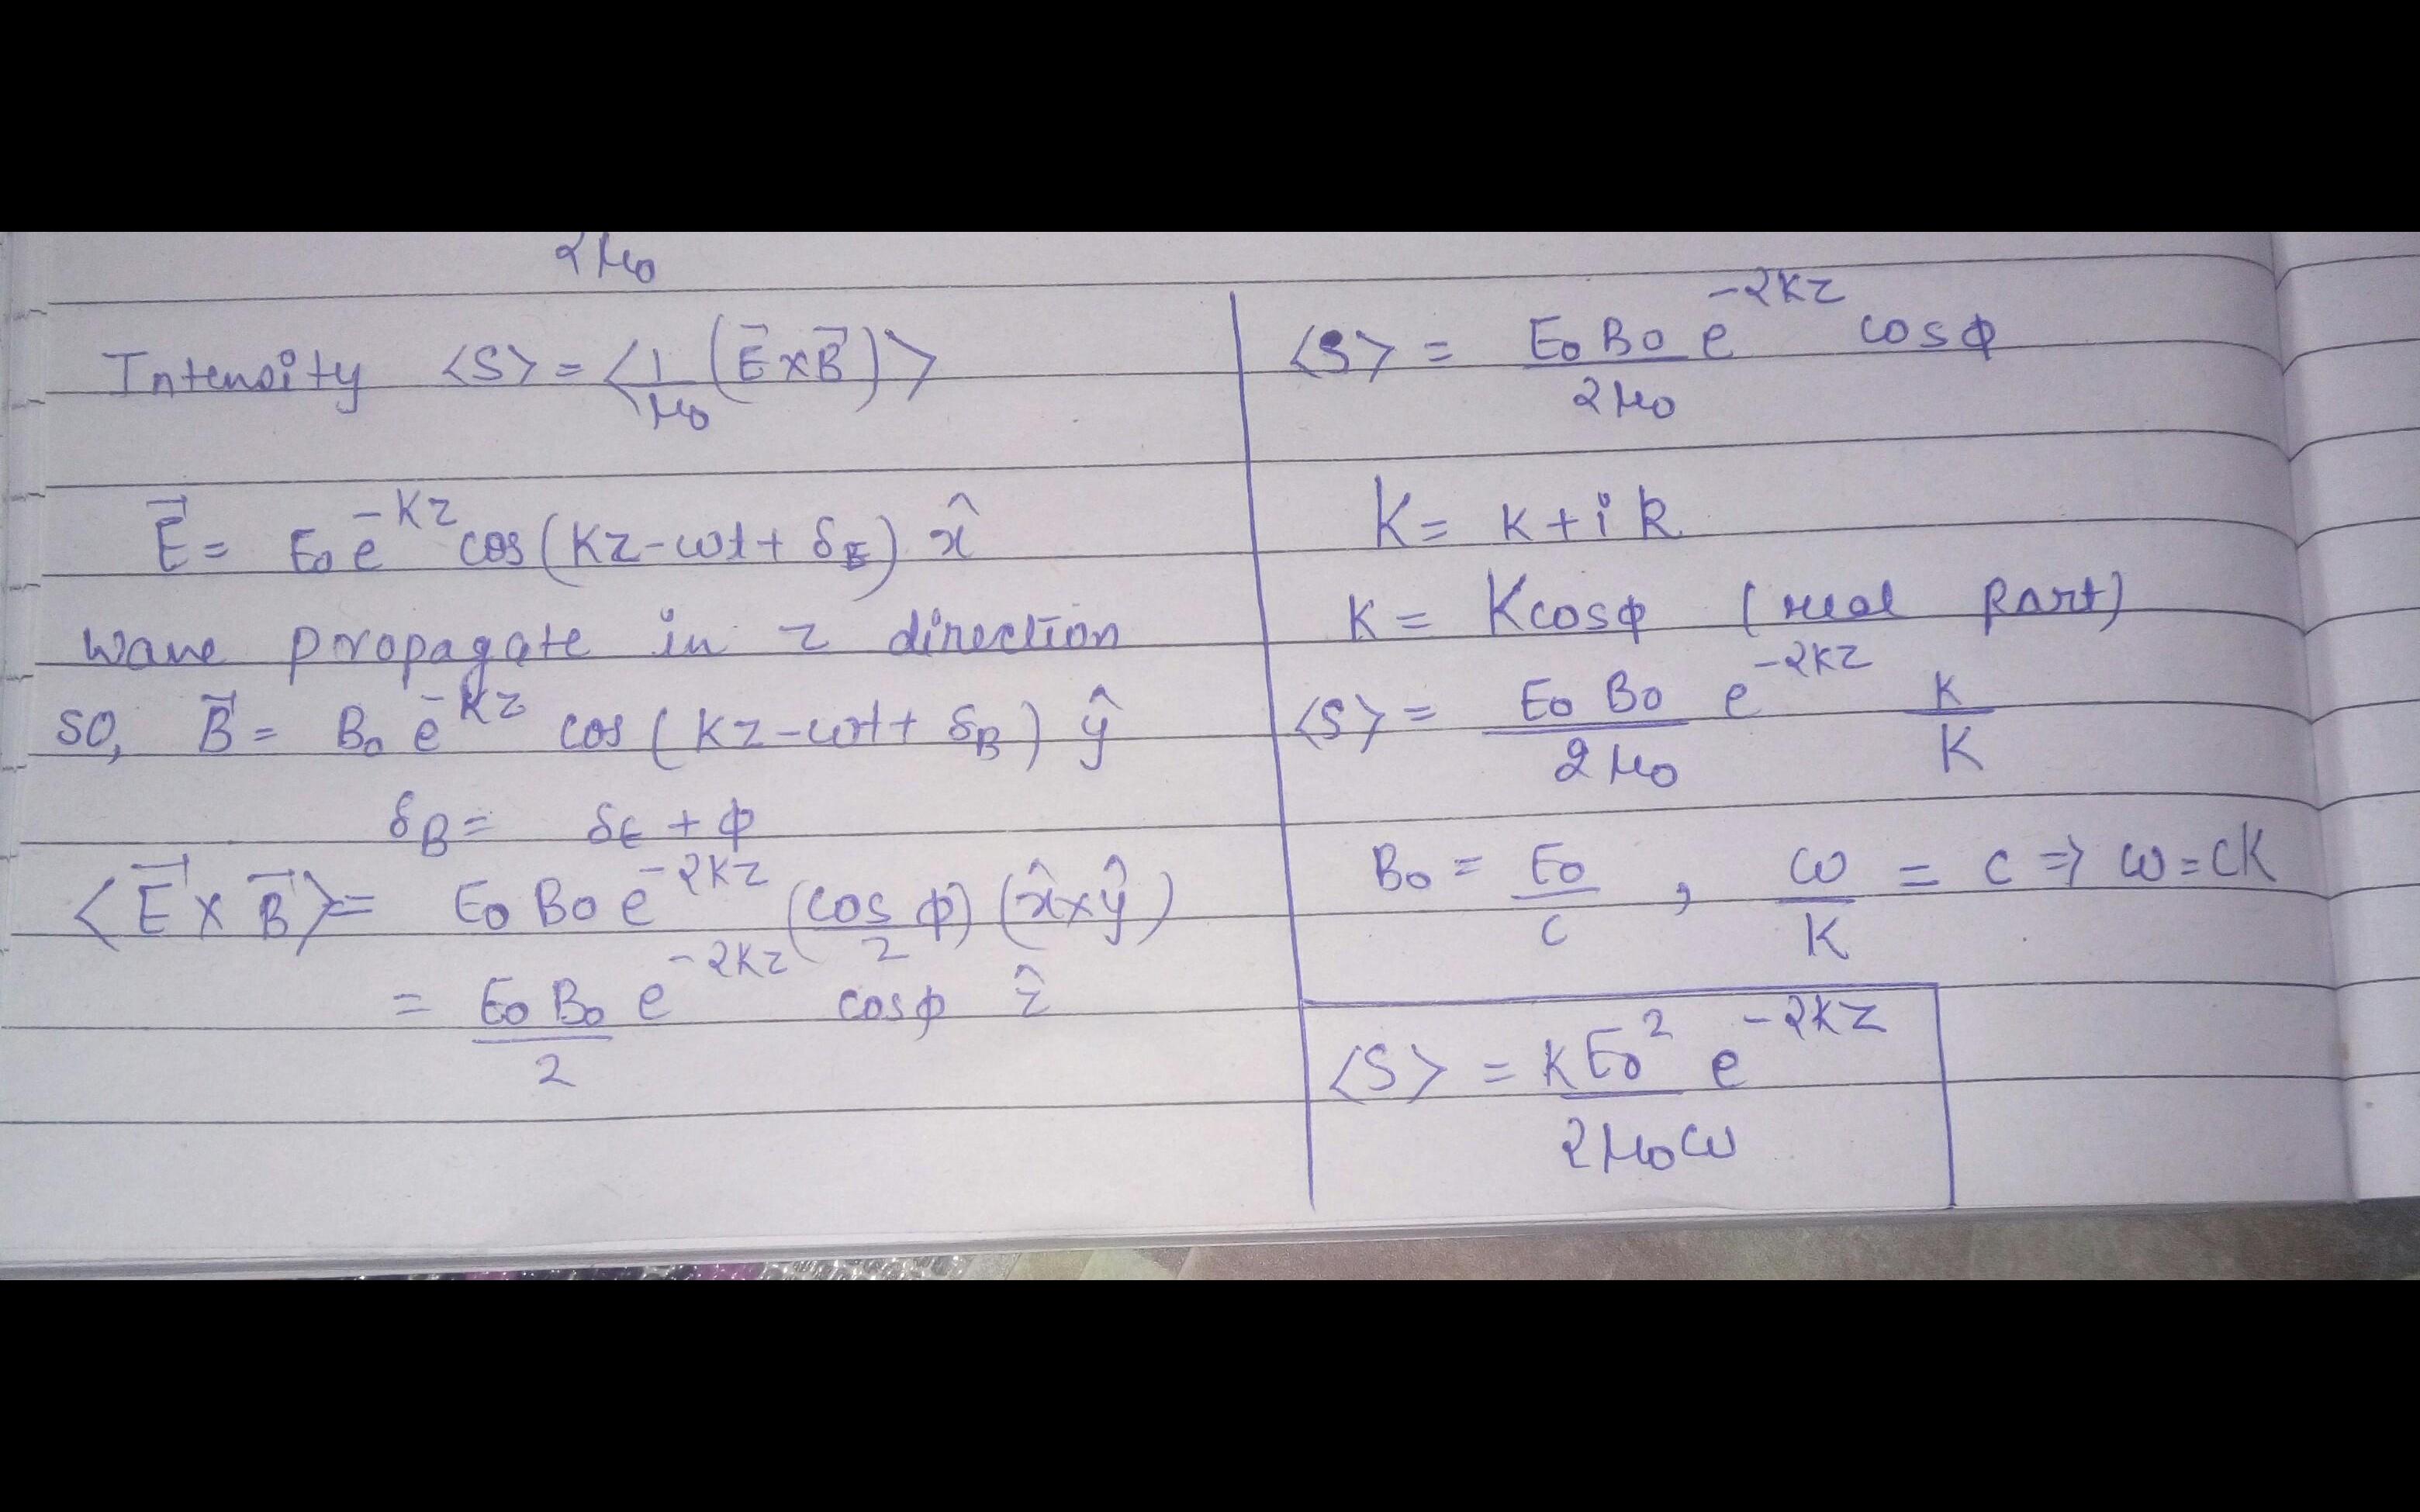 2μ₀
Intensity <S> = <1/μ₀ (E⃗ × B⃗)>
E⃗ = E₀ e^(-Kz) cos(Kz-ωt + δ_E) x̂
Wave propagate in z direction
so, B⃗ = B₀ e^(-Kz) cos(Kz-ωt + δ_B) ŷ
δ_B = δ_E + φ
<E⃗ × B⃗> = E₀ B₀ e^(-2Kz) (cos φ/2) (x̂ × ŷ)
= E₀ B₀/2 e^(-2Kz) cosφ ẑ
<S> = E₀ B₀/2μ₀ e^(-2Kz) cosφ
K = k + i k
K = K cosφ (real part)
<S> = E₀ B₀/2μ₀ e^(-2Kz) K/K
B₀ = E₀/c , ω/K = c ⇒ ω = cK
<S> = KE₀²/2μ₀ω e^(-2Kz)